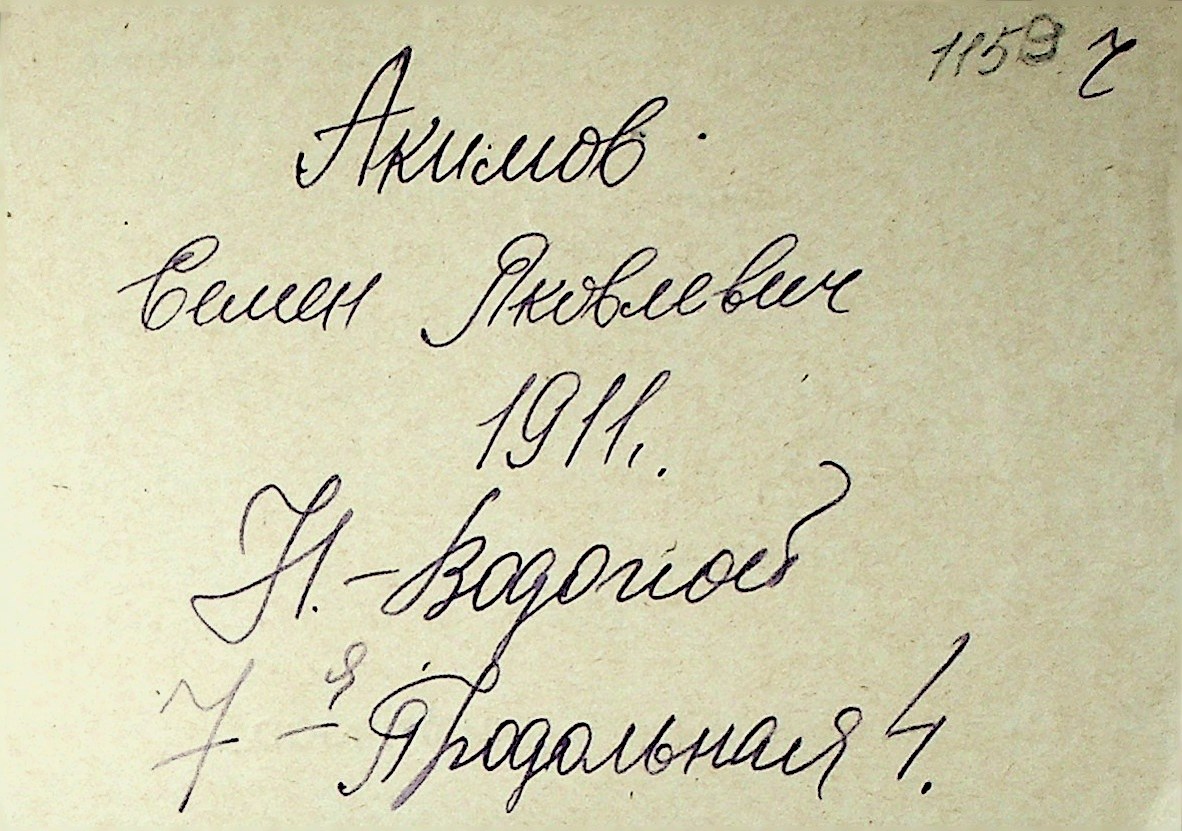 1159 ч
Акимов.
Семен Яковлевич
1911.
Н.-Водопой
7-я Продольная 4.